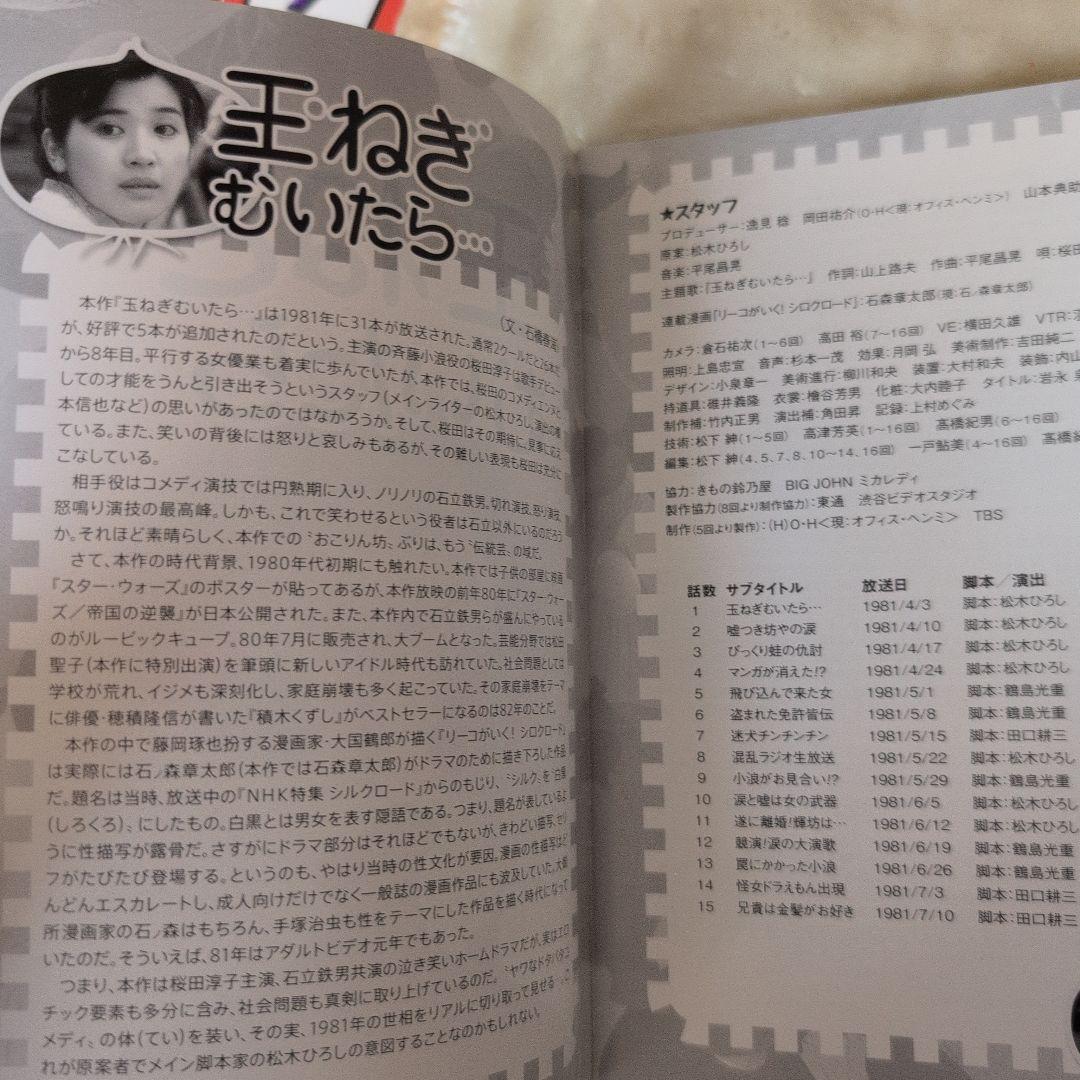 玉ねぎ
むいたら…
(文・石橋春海)
本作『玉ねぎむいたら…』は1981年に31本が放送された。通常2クールだと26本だ
が、好評で5本が追加されたのだという。主演の斉藤小浪役の桜田淳子は歌手デビュー
から8年目。平行する女優業も着実に歩んでいたが、本作では、桜田のコメディエンヌと
しての才能をうんと引き出そうというスタッフ(メインライターの松木ひろし、演出の
本信也など)の思いがあったのではなかろうか。そして、桜田はその期待に、見事に応え
ている。また、笑いの背後には怒りと哀しみもあるが、その難しい表現も桜田は充分に
こなしている。
相手役はコメディ演技では円熟期に入り、ノリノリの石立鉄男。切れ演技、怒り演技、
怒鳴り演技の最高峰。しかも、これで笑わせるという役者は石立以外にいるのだろう
か。それほど素晴らしく、本作での〝おこりん坊〟ぶりは、もう〝伝統芸〟の域だ。
さて、本作の時代背景、1980年代初期にも触れたい。本作では子供の部屋に映画
『スター・ウォーズ』のポスターが貼ってあるが、本作放映の前年80年に『スター・ウォー
ズ/帝国の逆襲』が日本公開された。また、本作内で石立鉄男らが盛んにやっている
のがルービックキューブ。80年7月に販売され、大ブームとなった。芸能分野では松田
聖子(本作に特別出演)を筆頭に新しいアイドル時代も訪れていた。社会問題としては
学校が荒れ、イジメも深刻化し、家庭崩壊も多く起こっていた。その家庭崩壊をテーマ
に俳優・穂積隆信が書いた『積木くずし』がベストセラーになるのは82年のことだ。
本作の中で藤岡琢也扮する漫画家・大国鶴郎が描く『リーコがいく! シロクロード』
は実際には石ノ森章太郎(本作では石森章太郎)がドラマのために描き下ろした作品
だ。題名は当時、放送中の『NHK特集 シルクロード』からのもじり、〝シルク〟を〝白黒
(しろくろ)〟にしたもの。白黒とは男女を表す隠語である。つまり、題名が表しているよ
うに性描写が露骨だ。さすがにドラマ部分はそれほどでもないが、きわどい描写、セリ
フがたびたび登場する。というのも、やはり当時の性文化が要因。漫画の性描写はど
んどんエスカレートし、成人向けだけでなく一般誌の漫画作品にも波及していた。大御
所漫画家の石ノ森はもちろん、手塚治虫も性をテーマにした作品を描く時代になって
いたのだ。そういえば、81年はアダルトビデオ元年でもあった。
つまり、本作は桜田淳子主演、石立鉄男共演の泣き笑いホームドラマだが、実はエロ
チック要素も多分に含み、社会問題も真剣に取り上げているのだ。〝ヤワなドタバタコ
メディ〟の体(てい)を装い、その実、1981年の世相をリアルに切り取って見せる…こ
れが原案者でメイン脚本家の松木ひろしの意図することなのかもしれない。
★スタッフ
プロデューサー:逸見 稔 岡田祐介(O・H<現:オフィス・ヘンミ>) 山本典助
原案:松木ひろし
音楽:平尾昌晃
主題歌:『玉ねぎむいたら…』 作詞:山上路夫 作曲:平尾昌晃 唄:桜田
連載漫画『リーコがいく! シロクロード』:石森章太郎(現:石ノ森章太郎)
カメラ:倉石祐次(1〜6回) 高田 裕(7〜16回) VE:横田久雄 VTR:
照明:上島忠宣 音声:杉本一茂 効果:月岡 弘 美術制作:吉田純二
デザイン:小泉章一 美術進行:柳川和央 装置:大村和夫 装飾:内山
持道具:碓井義隆 衣裳:檜谷芳男 化粧:大内睦子 タイトル:岩永
制作補:竹内正男 演出補:角田昇 記録:上村めぐみ
技術:松下 紳(1〜5回) 高津芳英(1〜16回) 髙橋紀男(6〜16回)
編集:松下 紳(4、5、7、8、10〜14、16回) 一戸鮎美(4〜16回) 髙橋紀
協力:きもの鈴乃屋 BIG JOHN ミカレディ
製作協力(8回より制作協力):東通 渋谷ビデオスタジオ
制作(5回より製作):(H)O・H<現:オフィス・ヘンミ> TBS
話数 サブタイトル 放送日 脚本/演出
1 玉ねぎむいたら… 1981/4/3 脚本:松木ひろし
2 嘘つき坊やの涙 1981/4/10 脚本:松木ひろし
3 びっくり蛙の仇討 1981/4/17 脚本:松木ひろし
4 マンガが消えた!? 1981/4/24 脚本:松木ひろし
5 飛び込んで来た女 1981/5/1 脚本:鶴島光重
6 盗まれた免許皆伝 1981/5/8 脚本:鶴島光重
7 迷犬チンチンチン 1981/5/15 脚本:田口耕三
8 混乱ラジオ生放送 1981/5/22 脚本:松木ひろし
9 小浪がお見合い!? 1981/5/29 脚本:鶴島光重
10 涙と嘘は女の武器 1981/6/5 脚本:松木ひろし
11 遂に離婚!輝坊は… 1981/6/12 脚本:松木ひろし
12 競演!涙の大演歌 1981/6/19 脚本:鶴島光重
13 罠にかかった小浪 1981/6/26 脚本:鶴島光重
14 怪女ドラえもん出現 1981/7/3 脚本:田口耕三
15 兄貴は金髪がお好き 1981/7/10 脚本:田口耕三